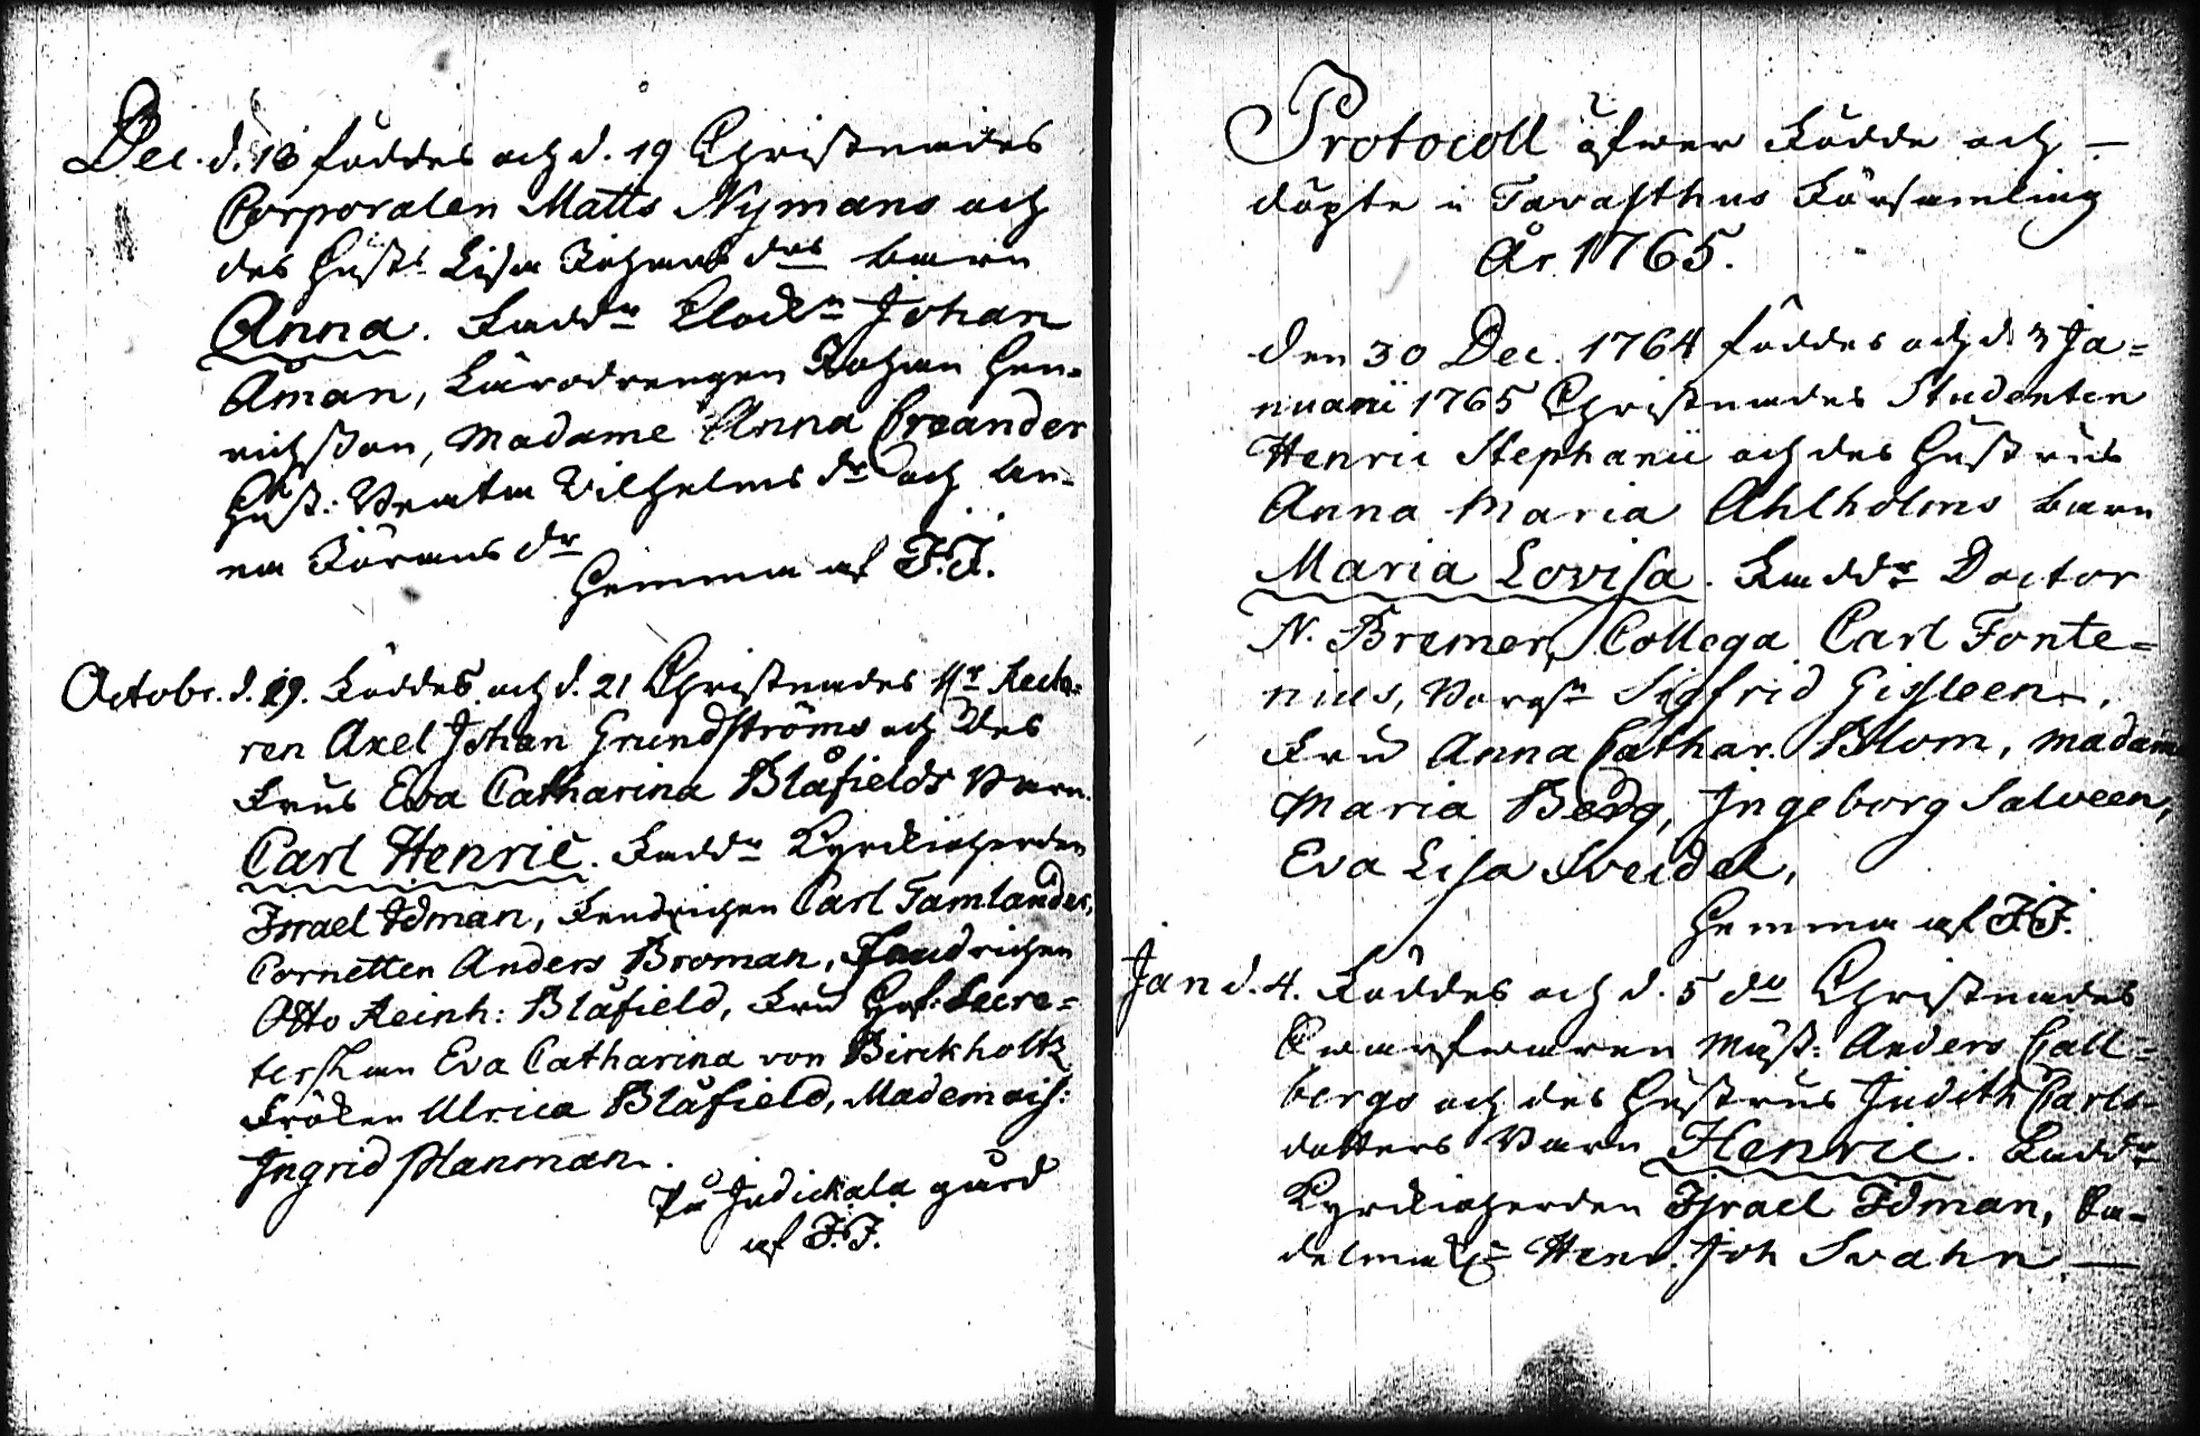 Dec. d. 18 föddes och d. 19 Christnades
Corporalen Matts Nymans och
des Hustr Lisa Johans drs barn
Anna. Faddr Klockn Johan
Åman, Lärodrengen Johan Hen-
richsson, Madame Anna Creander
Hust: Beata Wilhelms dr och An-
na Görans dr
Hemma af I.I.
Octobr. d. 19. Föddes och d. 21 Christnades Hr Recto=
ren Axel Johan Grundströms och des
Frus Eva Catharina Blåfields Barn
Carl Henric. Faddr Kyrckioherden
Israel Idman, Fendrichen Carl Tamlander,
Cornetten Anders Broman, Fendrichen
Otto Reinh: Blåfield, Fru Hof: Secre=
terskan Eva Catharina von Birckholtz
Fröken Ulrica Blåfield, Mademois:
Ingrid Planman.
På Judickala gård
af I.I.
Protocoll öfwer Födde och —
döpte i Tavasthus Församling
År 1765.
Den 30 Dec. 1764 föddes och d. 3 Ja=
nuarii 1765 Christnades Studenten
Henric Stephanii och des Hustrus
Anna Maria Ahlholms barn
Maria Lovisa. Faddr Doctor
N. Bremer, Collega Carl Fonte=
nius, Borgn Sigfrid Gisleen,
Fru Anna Cathar. Blom, Madame
Maria Berg, Ingeborg Salveen,
Eva Lisa Sveidel,
Hemma af I.I.
Jan d. 4. Föddes och d. 5 do Christnades
Qwarfwaren Mäst: Anders Call=
bergs och des Hustrus Judith Carls-
dotters Barn Henric. Faddr
Kyrckioherden Israel Idman, Sa-
delmakn Henr. Joh Svahn —